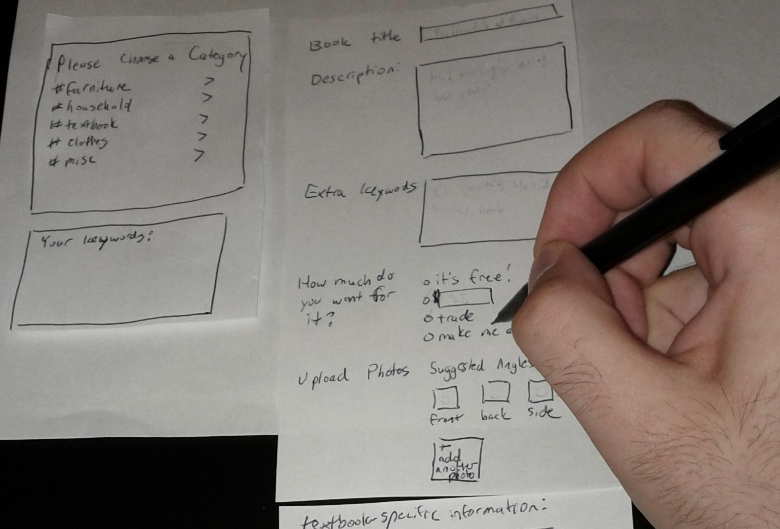 Please Choose a Category
#furniture >
#household >
#textbook >
# clothes >
# misc >
Your keywords:
Book title
Description:
Extra keywods
How much do
you want for
it?
o it's free!
o $
o trade
o make me
Upload Photos
Suggested Angles
front back side
+
add
another
photo
textbook-specific information: